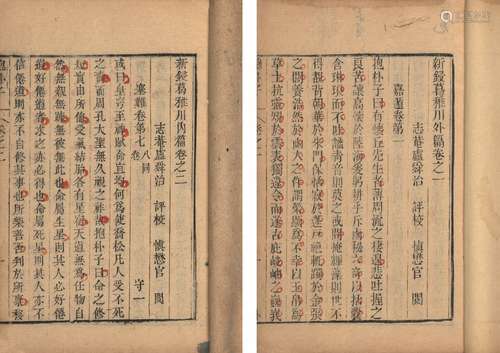 新鋟葛雅川外篇卷之一
志菴盧舜治 評校 慎懋官 閱
嘉遯卷第一
抱朴子曰有懷冰先生者薄周流之棲遑悲吐握之
良苦讓膏壤於陸海爰躬耕乎斥鹵祕六奇以括囊
含琳琅而不吐謐清音則莫之或聞掩輝藻則世不
得覩背朝華於朱門保恬寂乎蓬戶絕軌躅於金張
之閭養浩然於幽人之仵謂榮顯為不幸以玉帛為
草土抗靈規於雲表獨違今而遂古庇峻岫之
新鋟葛雅川內篇卷之二
志菴盧舜治 評校 慎懋官 閱
塞難卷第七 八同卷 守一
或曰皇穹至神賦命宜均何為使喬松凡人受不死
之壽而周孔大聖無久視之祚哉抱朴子曰命之修
短實由所值受氣結胎各有星宿天道無為任物自
然無親無疎無彼無此也命屬生星則其人必好僊
道好僊道者求之亦必得也命屬死星則其人亦不
信僊道則亦不自修其事也所樂善否判於所稟移